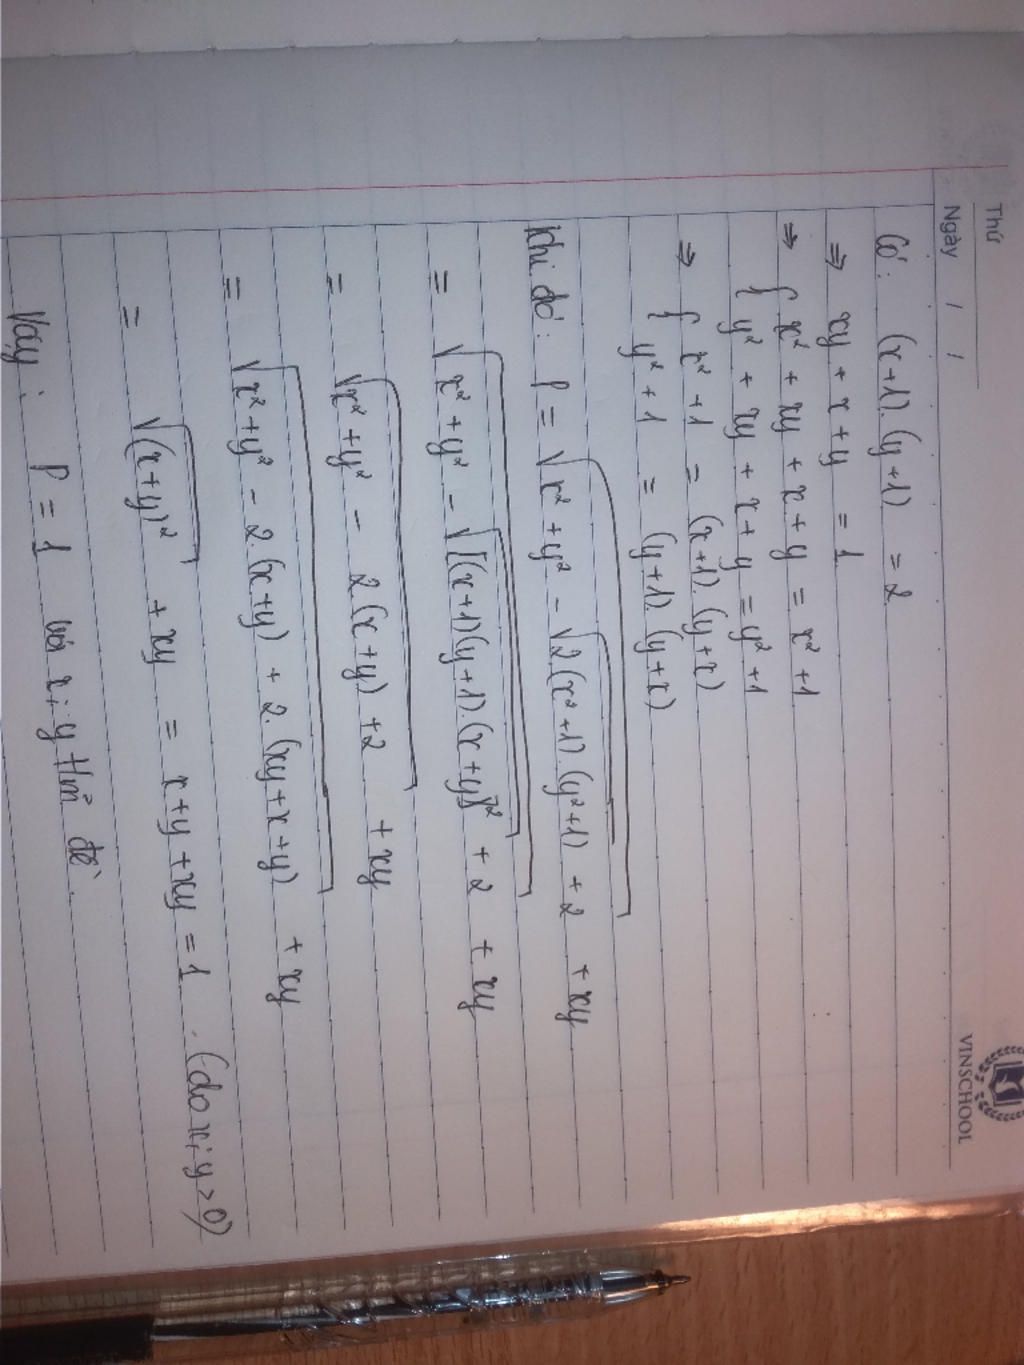 Thứ
Ngày / /
VINSCHOOL
Có: (x+1).(y+1) = 2
⇒ xy + x + y = 1
⇒ { x² + xy + x + y = x² + 1
{ y² + xy + x + y = y² + 1
⇒ { x² + 1 = (x+1).(y+x)
{ y² + 1 = (y+1).(y+x)
Khi đó: P = √(x² + y² - √(2(x²+1).(y²+1)) + 2) + xy
= √(x² + y² - √([(x+1)(y+1).(x+y)]²) + 2) + xy
= √(x² + y² - 2.(x+y) + 2) + xy
= √(x² + y² - 2.(x+y) + 2.(xy+x+y)) + xy
= √((x+y)²) + xy = x + y + xy = 1 . (do x; y > 0)
Vậy: P = 1 với x; y t/m² đề.